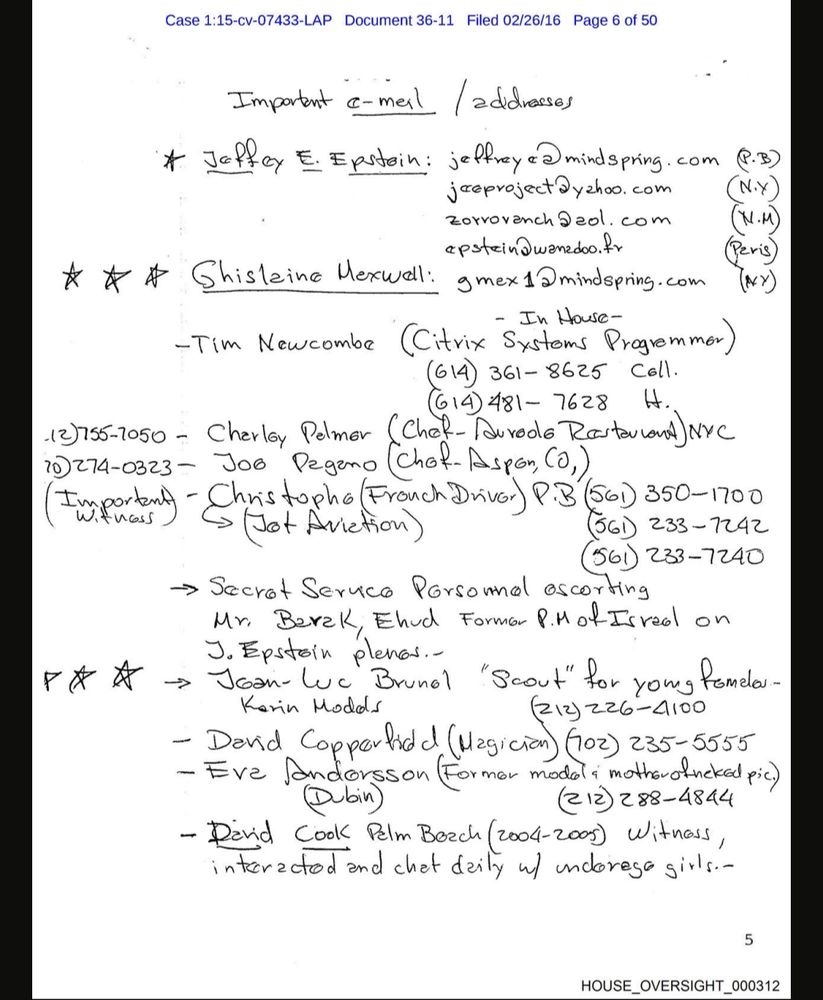 Case 1:15-cv-07433-LAP Document 36-11 Filed 02/26/16 Page 6 of 50
Important e-mail / addresses
Jeffey E. Epstein: jeffreye@mindspring.com (P.B)
jeeproject@yahoo.com (N.Y)
zorroranch@aol.com (N.M)
epstein@wanadoo.fr (Paris)
Ghislaine Maxwell: gmax1@mindspring.com (NY)
- In House -
- Tim Newcombe (Citrix Systems Programmer)
(614) 361-8625 Cell.
(614) 481-7628 H.
12)755-7050 - Charley Palmer (Chef- Restaurant) NYC
70)274-0323 - Joe Pagano (Chef- Aspen, CO,)
(Important Witness) - Christophe (French Driver) P.B (561) 350-1700
(Jet Aviation) (561) 233-7242
(561) 233-7240
→ Secret Service Personnel escorting
Mr. Barak, Ehud Former P.M of Israel on
J. Epstein planes.-
→ Jean-Luc Brunel "Scout" for young females-
Karin Models (212) 226-4100
- David Copperfield (Magician) (702) 235-5555
- Eva Andersson (Former model & mother of naked pic.)
(Dubin) (212) 288-4844
- David Cook Palm Beach (2004-2005) Witness,
interacted and chat daily w/ underage girls.-
5
HOUSE_OVERSIGHT_000312